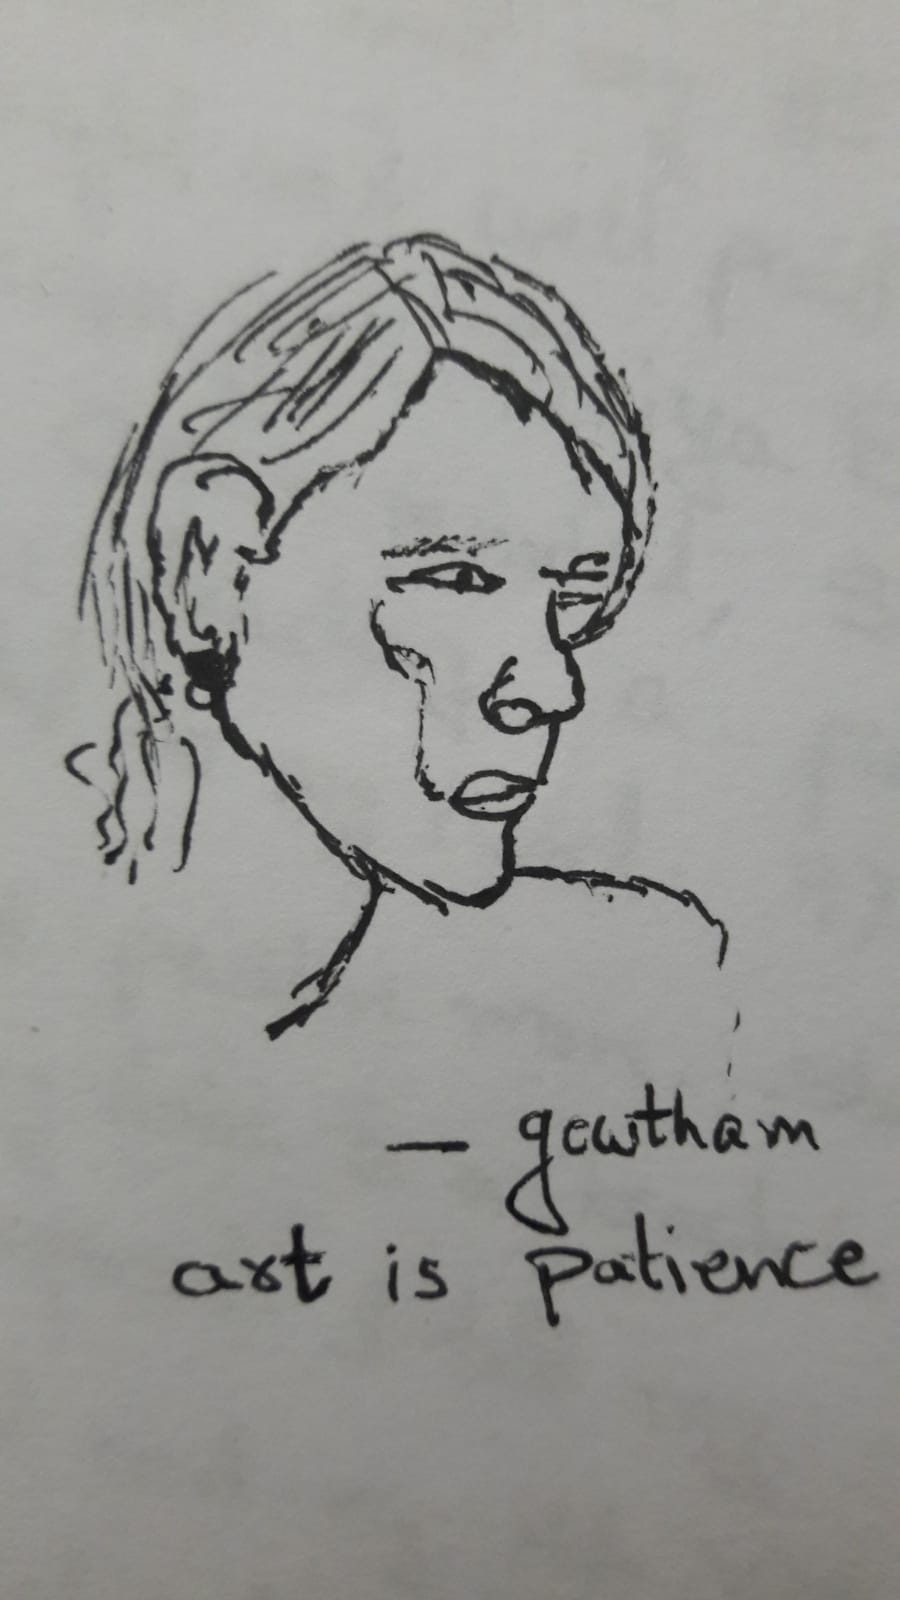 — gowtham
art is patience